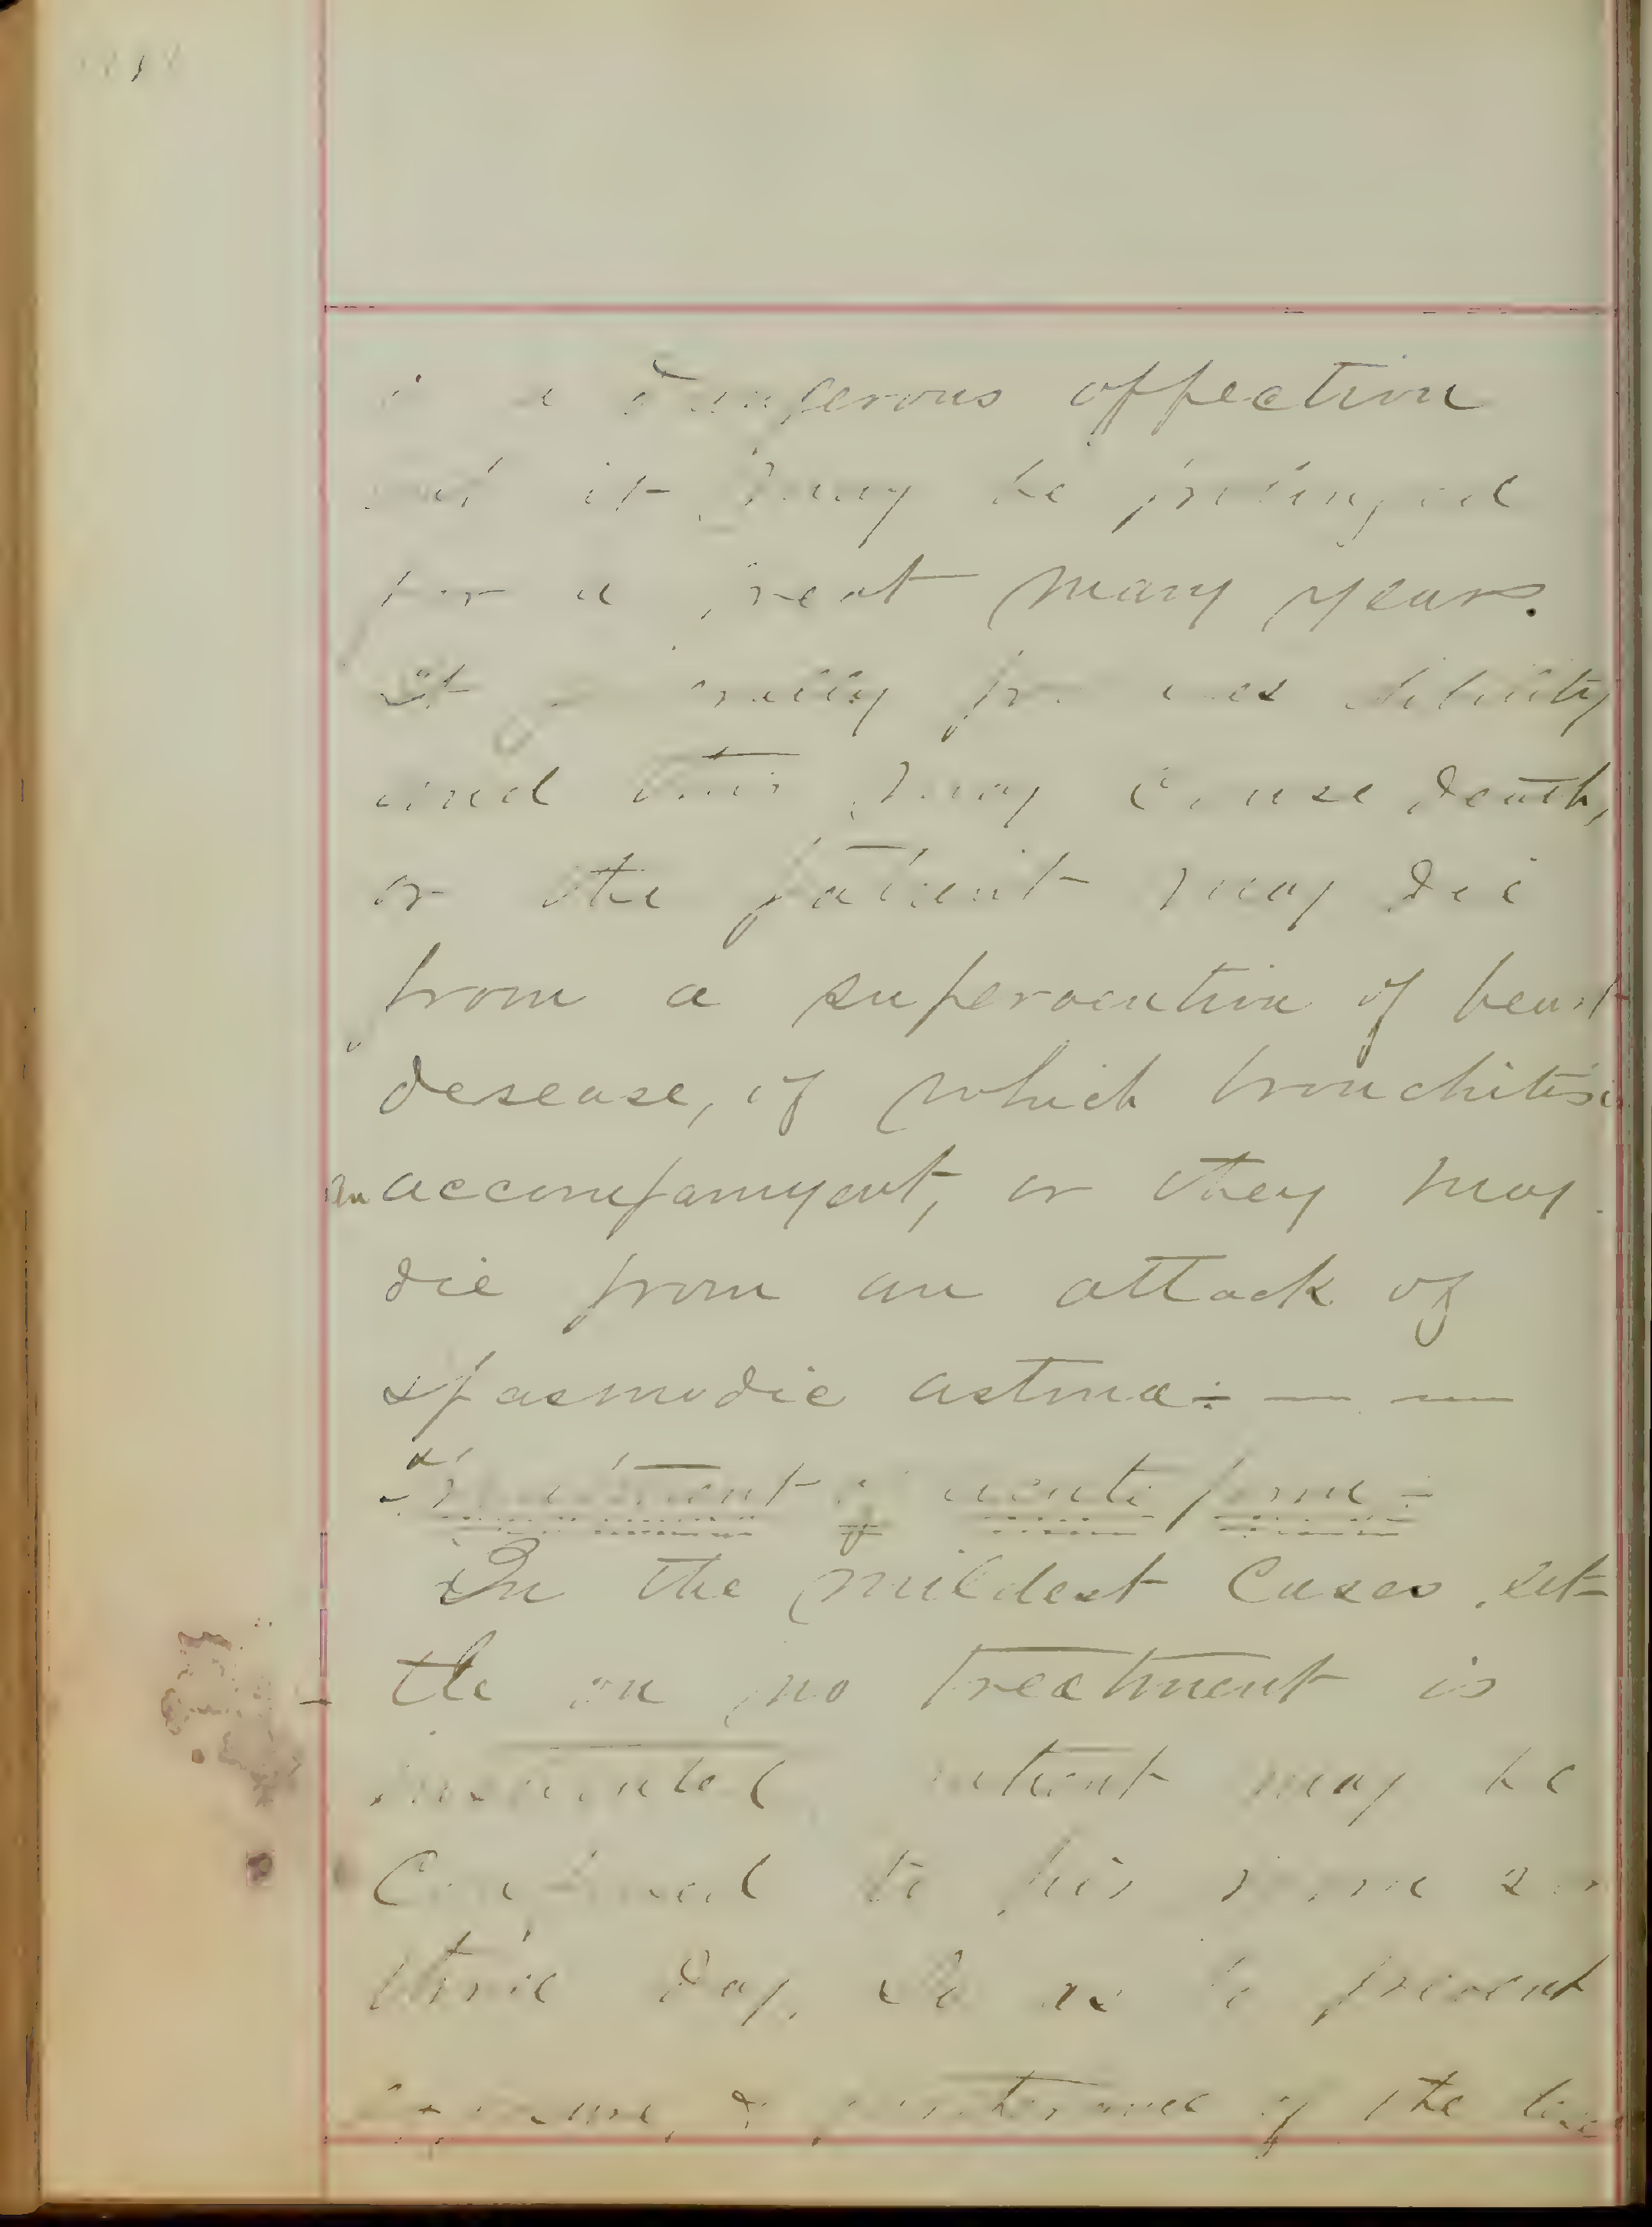 a dangerous affection
and it may be prolonged
for a great many years.
It generally produces debility
and this may cause death,
or the patient may die
from a supervention of heart
desease, of which bronchitis is
an accompanyent, or they may
die from an attack of
spasmodic astma÷ — —
Treatment of acute form -
In the mildest Cases, lit-
tle or no treatment is
patient may be
Confined to his
day, so as to prevent
exposure, & of the